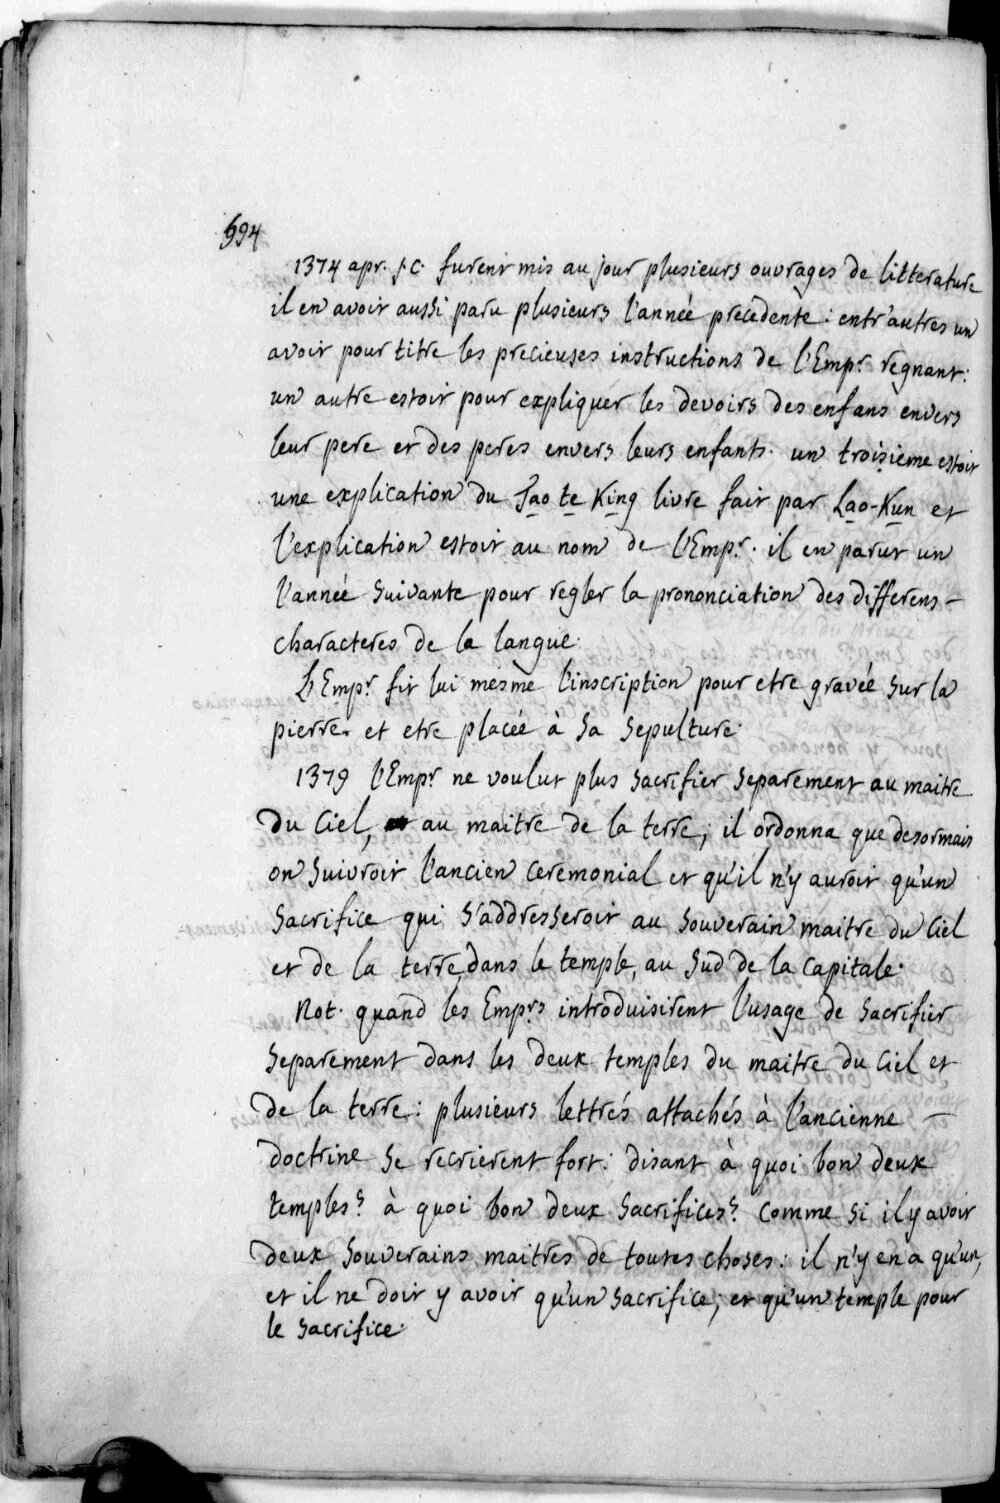 594
1374 apr. J.C. furent mis au jour plusieurs ouvrages de litterature
il en avoit aussi paru plusieurs l'année precedente: entr'autres un
avoit pour titre les precieuses instructions de l'Empr. regnant:
un autre estoit pour expliquer les devoirs des enfans envers
leur pere et des peres envers leurs enfants. un troisieme estoit
une explication du Tao te King livre fait par Lao-Kun et
l'explication estoit au nom de l'Empr. il en parut un
l'année suivante pour regler la prononciation des differens –
characteres de la langue.
L'Empr. fit lui mesme l'inscription pour etre gravée sur la
pierre et etre placée à sa sepulture.
1379 l'Empr. ne voulut plus sacrifier separement au maitre
du Ciel, au maitre de la terre; il ordonna que desormais
on suivroit l'ancien ceremonial et qu'il n'y auroit qu'un
sacrifice qui s'addresseroit au souverain maitre du Ciel
et de la terre, dans le temple, au sud de la capitale.
Not. quand les Emprs introduisirent l'usage de sacrifier
separement dans les deux temples du maitre du Ciel et
de la terre: plusieurs lettrés attachés à l'ancienne –
doctrine se recrierent fort: disant à quoi bon deux
temples? à quoi bon deux sacrifices? comme si il y avoit
deux souverains maitres de toutes choses: il n'y en a qu'un,
et il ne doit y avoir qu'un sacrifice; et qu'un temple pour
le sacrifice.